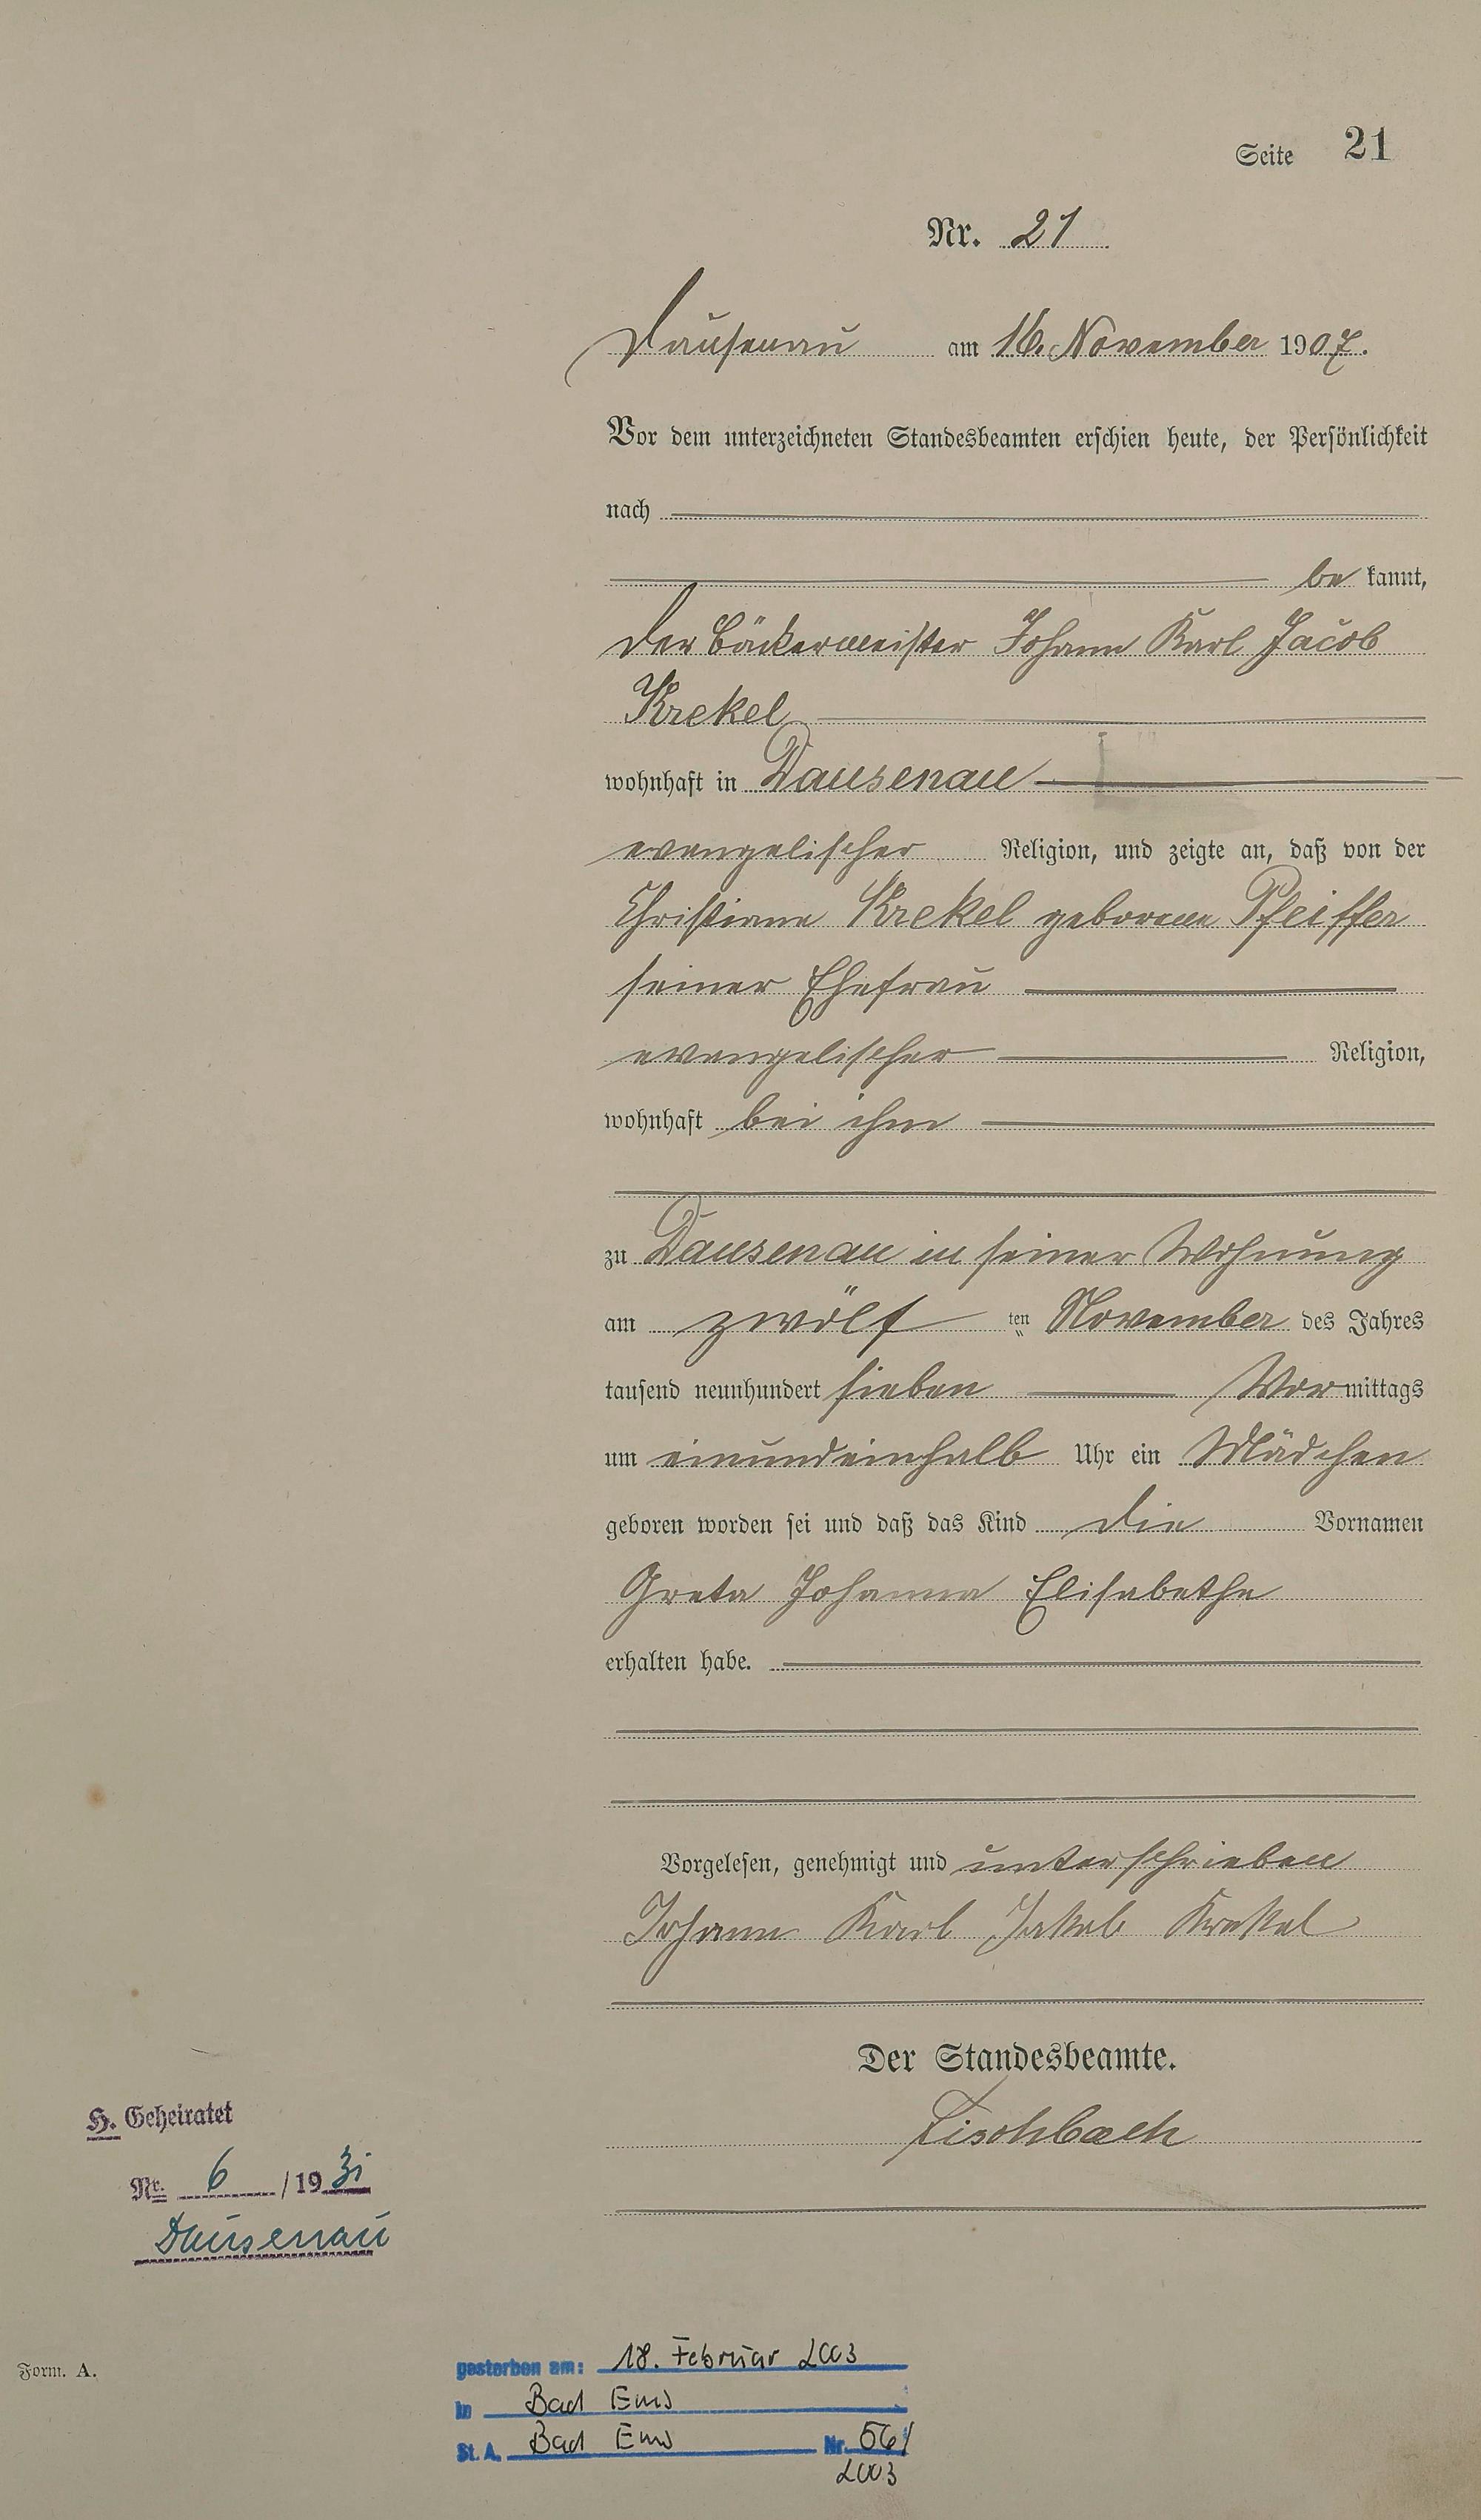 Seite 21
Nr. 21
Dausenau am 16. November 1907.
Vor dem unterzeichneten Standesbeamten erschien heute, der Persönlichkeit
nach
be kannt,
der Bäckermeister Johann Karl Jacob
Krekel
wohnhaft in Dausenau
evangelischer Religion, und zeigte an, daß von der
Christiane Krekel geborene Pfeiffer
seiner Ehefrau
evangelischer Religion,
wohnhaft bei ihm
zu Dausenau in seiner Wohnung
am zwölf ten November des Jahres
tausend neunhundert sieben Vormittags
um einundeinhalb Uhr ein Mädchen
geboren worden sei und daß das Kind die Vornamen
Greta Johanna Elisabethe
erhalten habe.
Vorgelesen, genehmigt und unterschrieben
Johann Karl Jakob Krekel
Der Standesbeamte.
Fischbach
H. Geheiratet
Nr. 6 /1931
Dausenau
Form. A.
gestorben am: 18. Februar 2003
in Bad Ems
St. A. Bad Ems Nr. 56/
2003